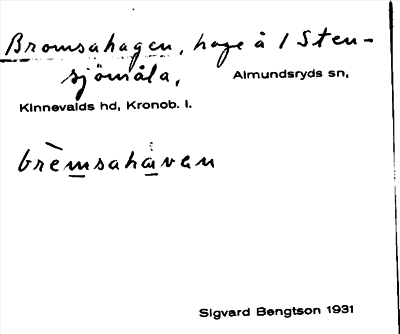 Bromsahagen, hage å 1 Sten-
sjömåla, Almundsryds sn,
Kinnevalds hd, Kronob. l.
brèmsahàvan
Sigvard Bengtson 1931